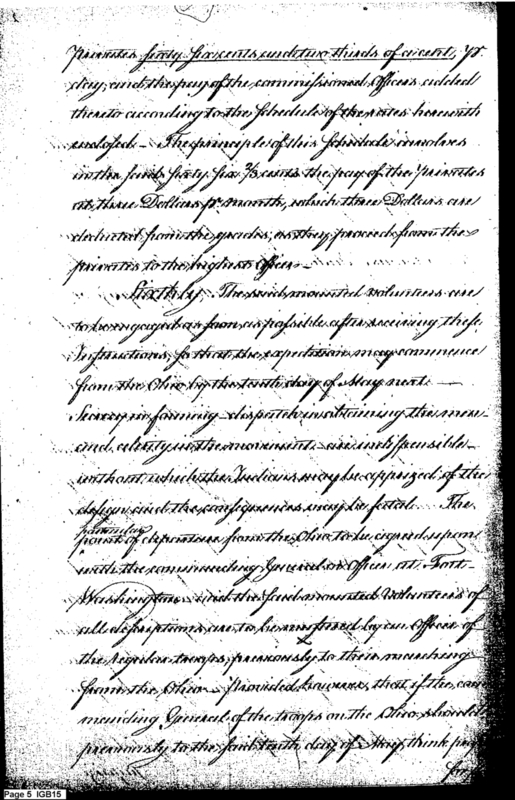 privates sixty six cents and two thirds of a cent, pr.
day, and the pay of the commissioned Officers added
thereto according to the Schedule of the rates herewith
enclosed — The principle of this Schedule involves
in the said sixty six 2/3 cents the pay of the privates
at three Dollars pr. month, which three Dollars are
deducted from the grades, as they proceed from the
privates to the highest Officer —
Sixthly. The said mounted volunteers are
to be engaged as soon as possible after receiving these
Instructions, so that the expedition may commence
from the Ohio by the tenth day of May next —
Secrecy in forming dispatch in obtaining the men
and celerity in the movement are indispensible —
without which the Indians may be apprized of the
design and the consequences may be fatal. The
particular
point of departure from the Ohio to be agreed upon
with the commanding General or Officer at Fort
Washington — and the said mounted Volunteers of
all descriptions are to be mustered by an Officer of
the regular troops, previously to their marching
from the Ohio — Provided however, that if the com
manding General of the troops on the Ohio should
previously to the said tenth day of May think
Page 5 IGB15